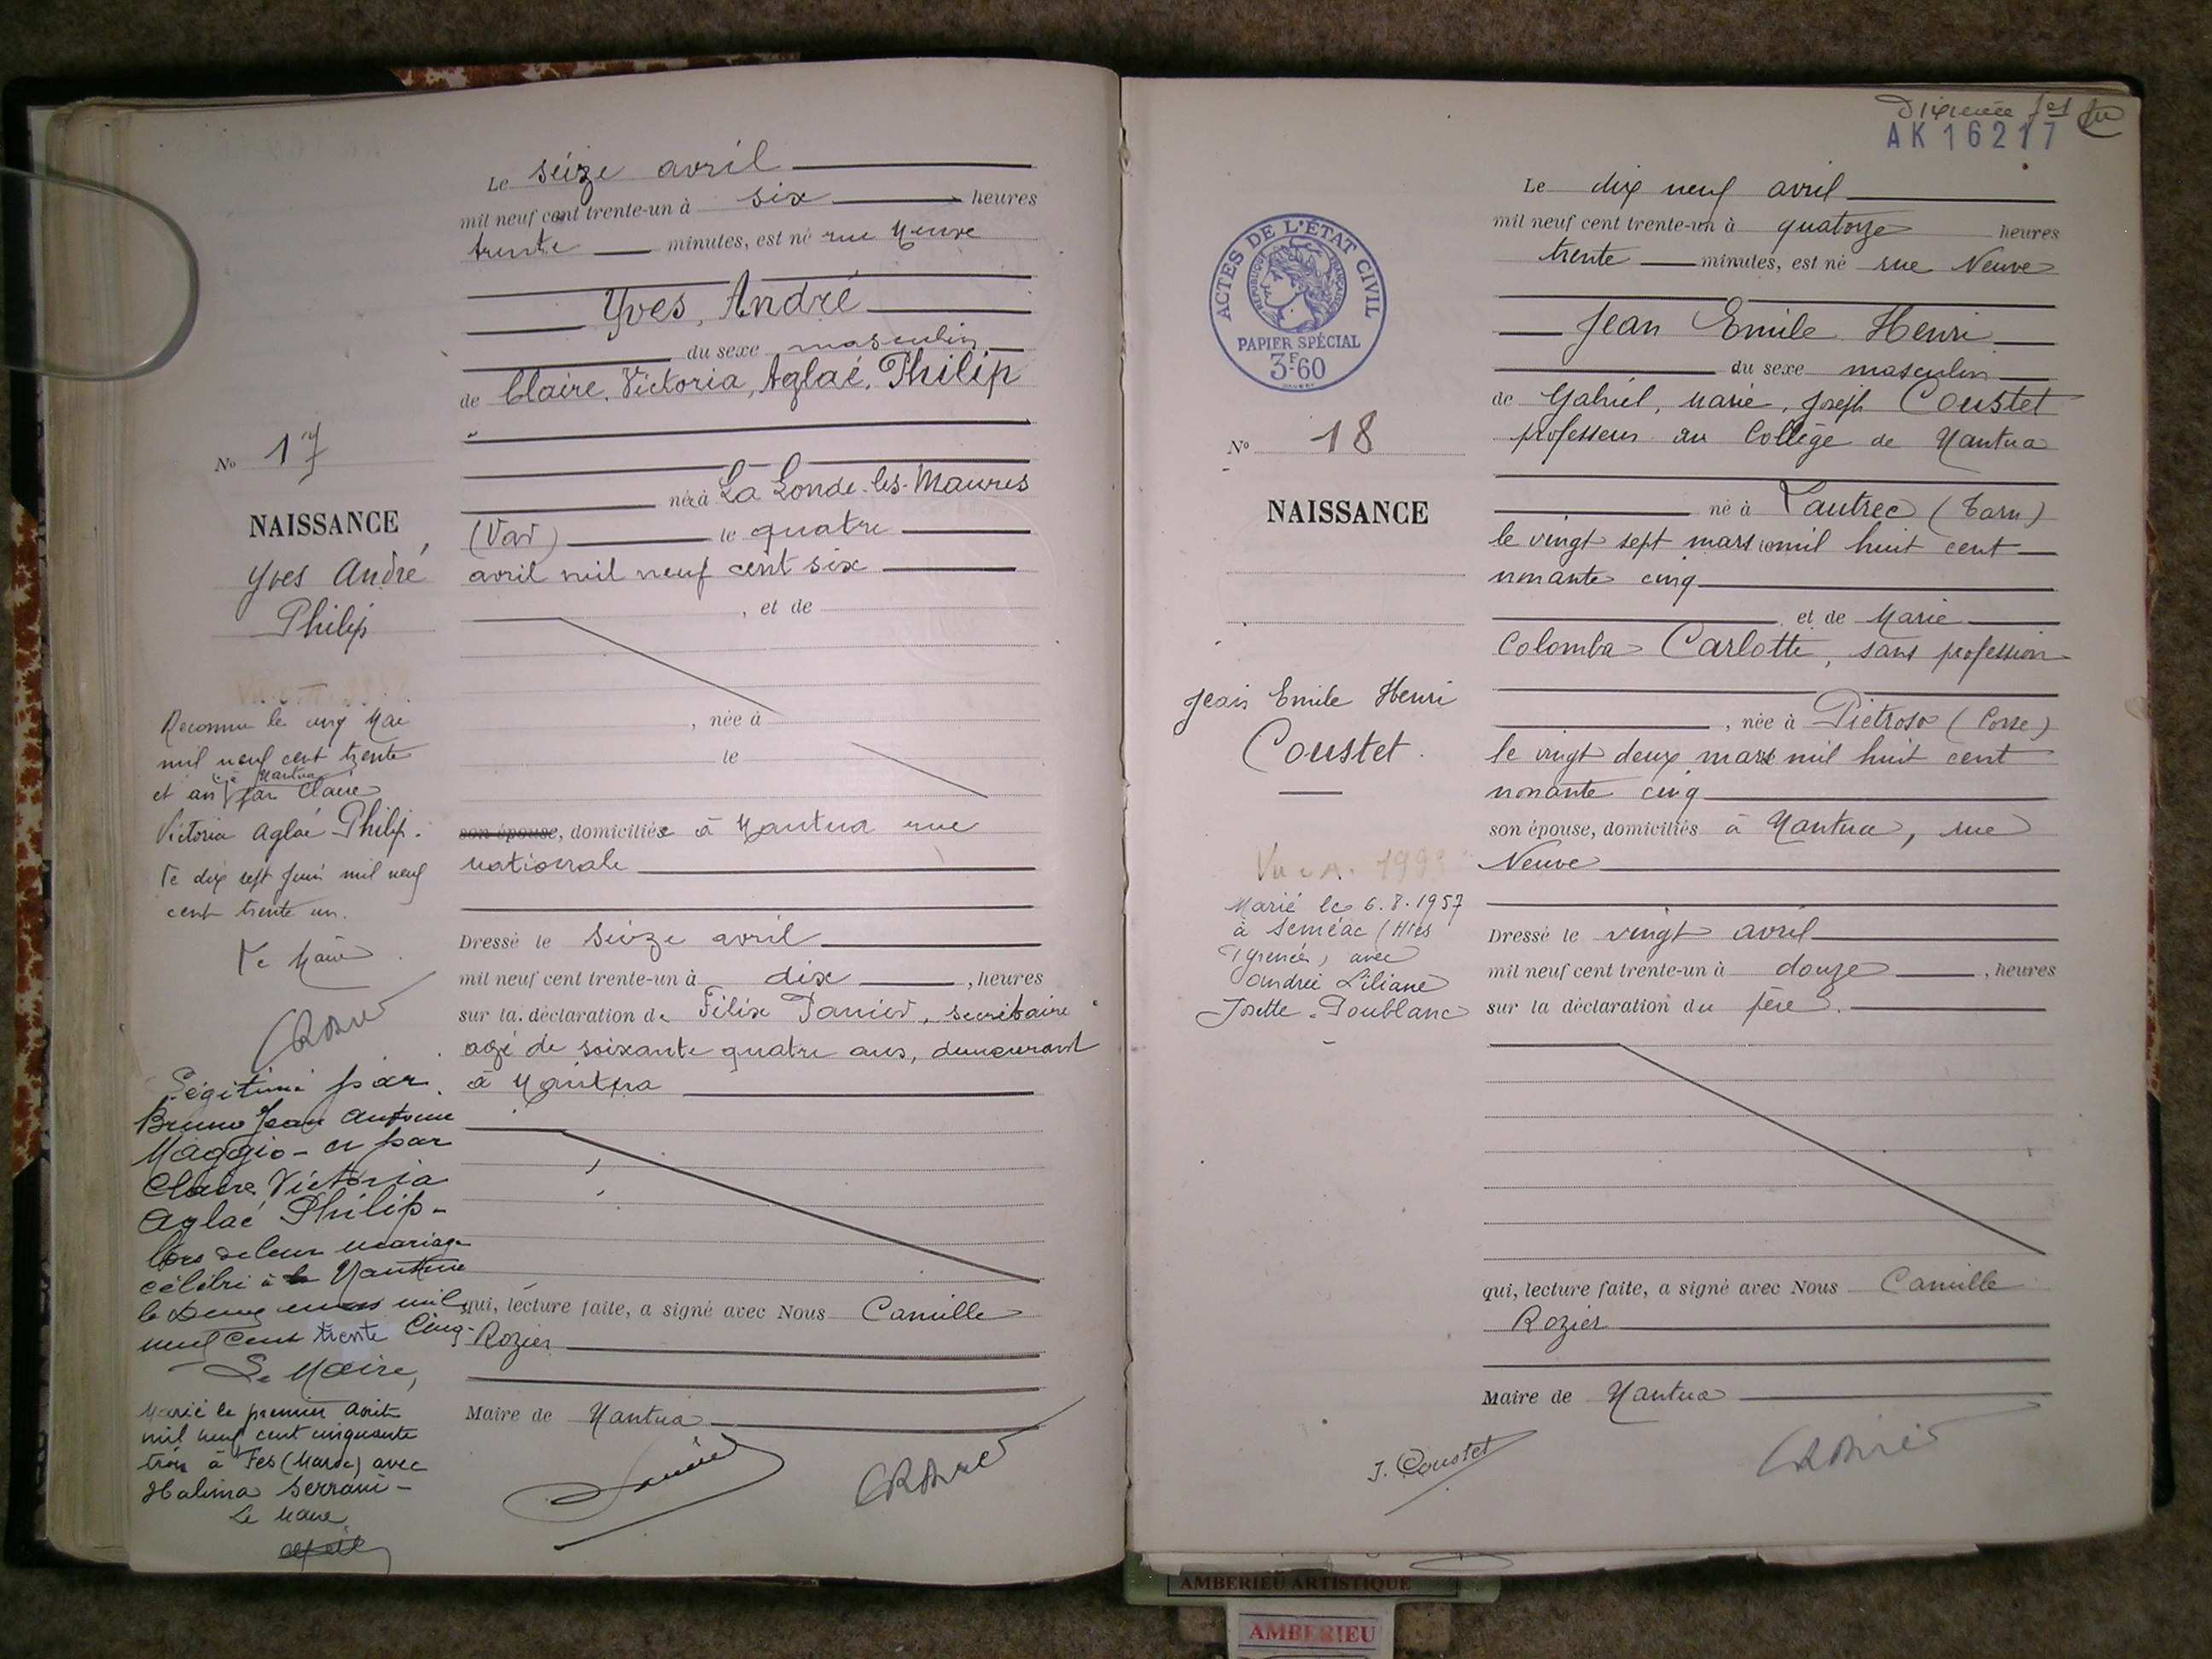 Le seize avril
mil neuf cent trente-un à six heures
trente minutes, est né rue Neuve
Yves, André
du sexe masculin
de Claire, Victoria, Aglaé, Philip
née à La Londe-les-Maures
(Var) le quatre
avril mil neuf cent six
, et de
, née à
le
son épouse, domiciliée à Nantua rue
nationale
Dressé le seize avril
mil neuf cent trente-un à dix , heures
sur la déclaration de Félix Tanier, secrétaire
agé de soixante quatre ans, demeurant
à Nantua
qui, lecture faite, a signé avec Nous Camille
Rozier
Maire de Nantua
No 17
NAISSANCE
Yves André
Philip
Reconnu le cinq Mai
mil neuf cent trente
et un à Nantua par Claire
Victoria Aglaé Philip.
Le dix sept Juin mil neuf
cent trente un.
Le Maire
Légitimé par
Bruno Jean Antoine
Maggio - et par
Claire Victoria
Aglaé Philip -
lors de leur mariage
célébré à Nantua
le Deux mars mil
neuf cent trente Cinq -
Le Maire,
Marié le premier Août
mil neuf cent cinquante
trois à Fès (Maroc) avec
Halima Serrani -
Le Maire
AK16217
Le dix neuf avril
mil neuf cent trente-un à quatorze heures
trente minutes, est né rue Neuve
Jean Emile Henri
du sexe masculin
de Gabriel, Marie, Joseph Coustet
professeur au Collège de Nantua
né à Lautrec (Tarn)
le vingt sept mars mil huit cent
nonante cinq
et de Marie
Colomba Carlotti, sans profession
, née à Pietroso (Corse)
le vingt deux mars mil huit cent
nonante cinq
son épouse, domiciliés à Nantua, rue
Neuve
Dressé le vingt avril
mil neuf cent trente-un à douze , heures
sur la déclaration du père.
qui, lecture faite, a signé avec Nous Camille
Rozier
Maire de Nantua
J. Coustet
ACTES DE L'ÉTAT CIVIL
RÉPUBLIQUE FRANÇAISE
PAPIER SPÉCIAL
3F60
No 18
NAISSANCE
Jean Emile Henri
Coustet.
Marié le 6.8.1957
à Séméac (Htes
Pyrénées) avec
Andrée Liliane
Josette Doublanc
AMBERIEU ARTISTIQUE
AMBERIEU